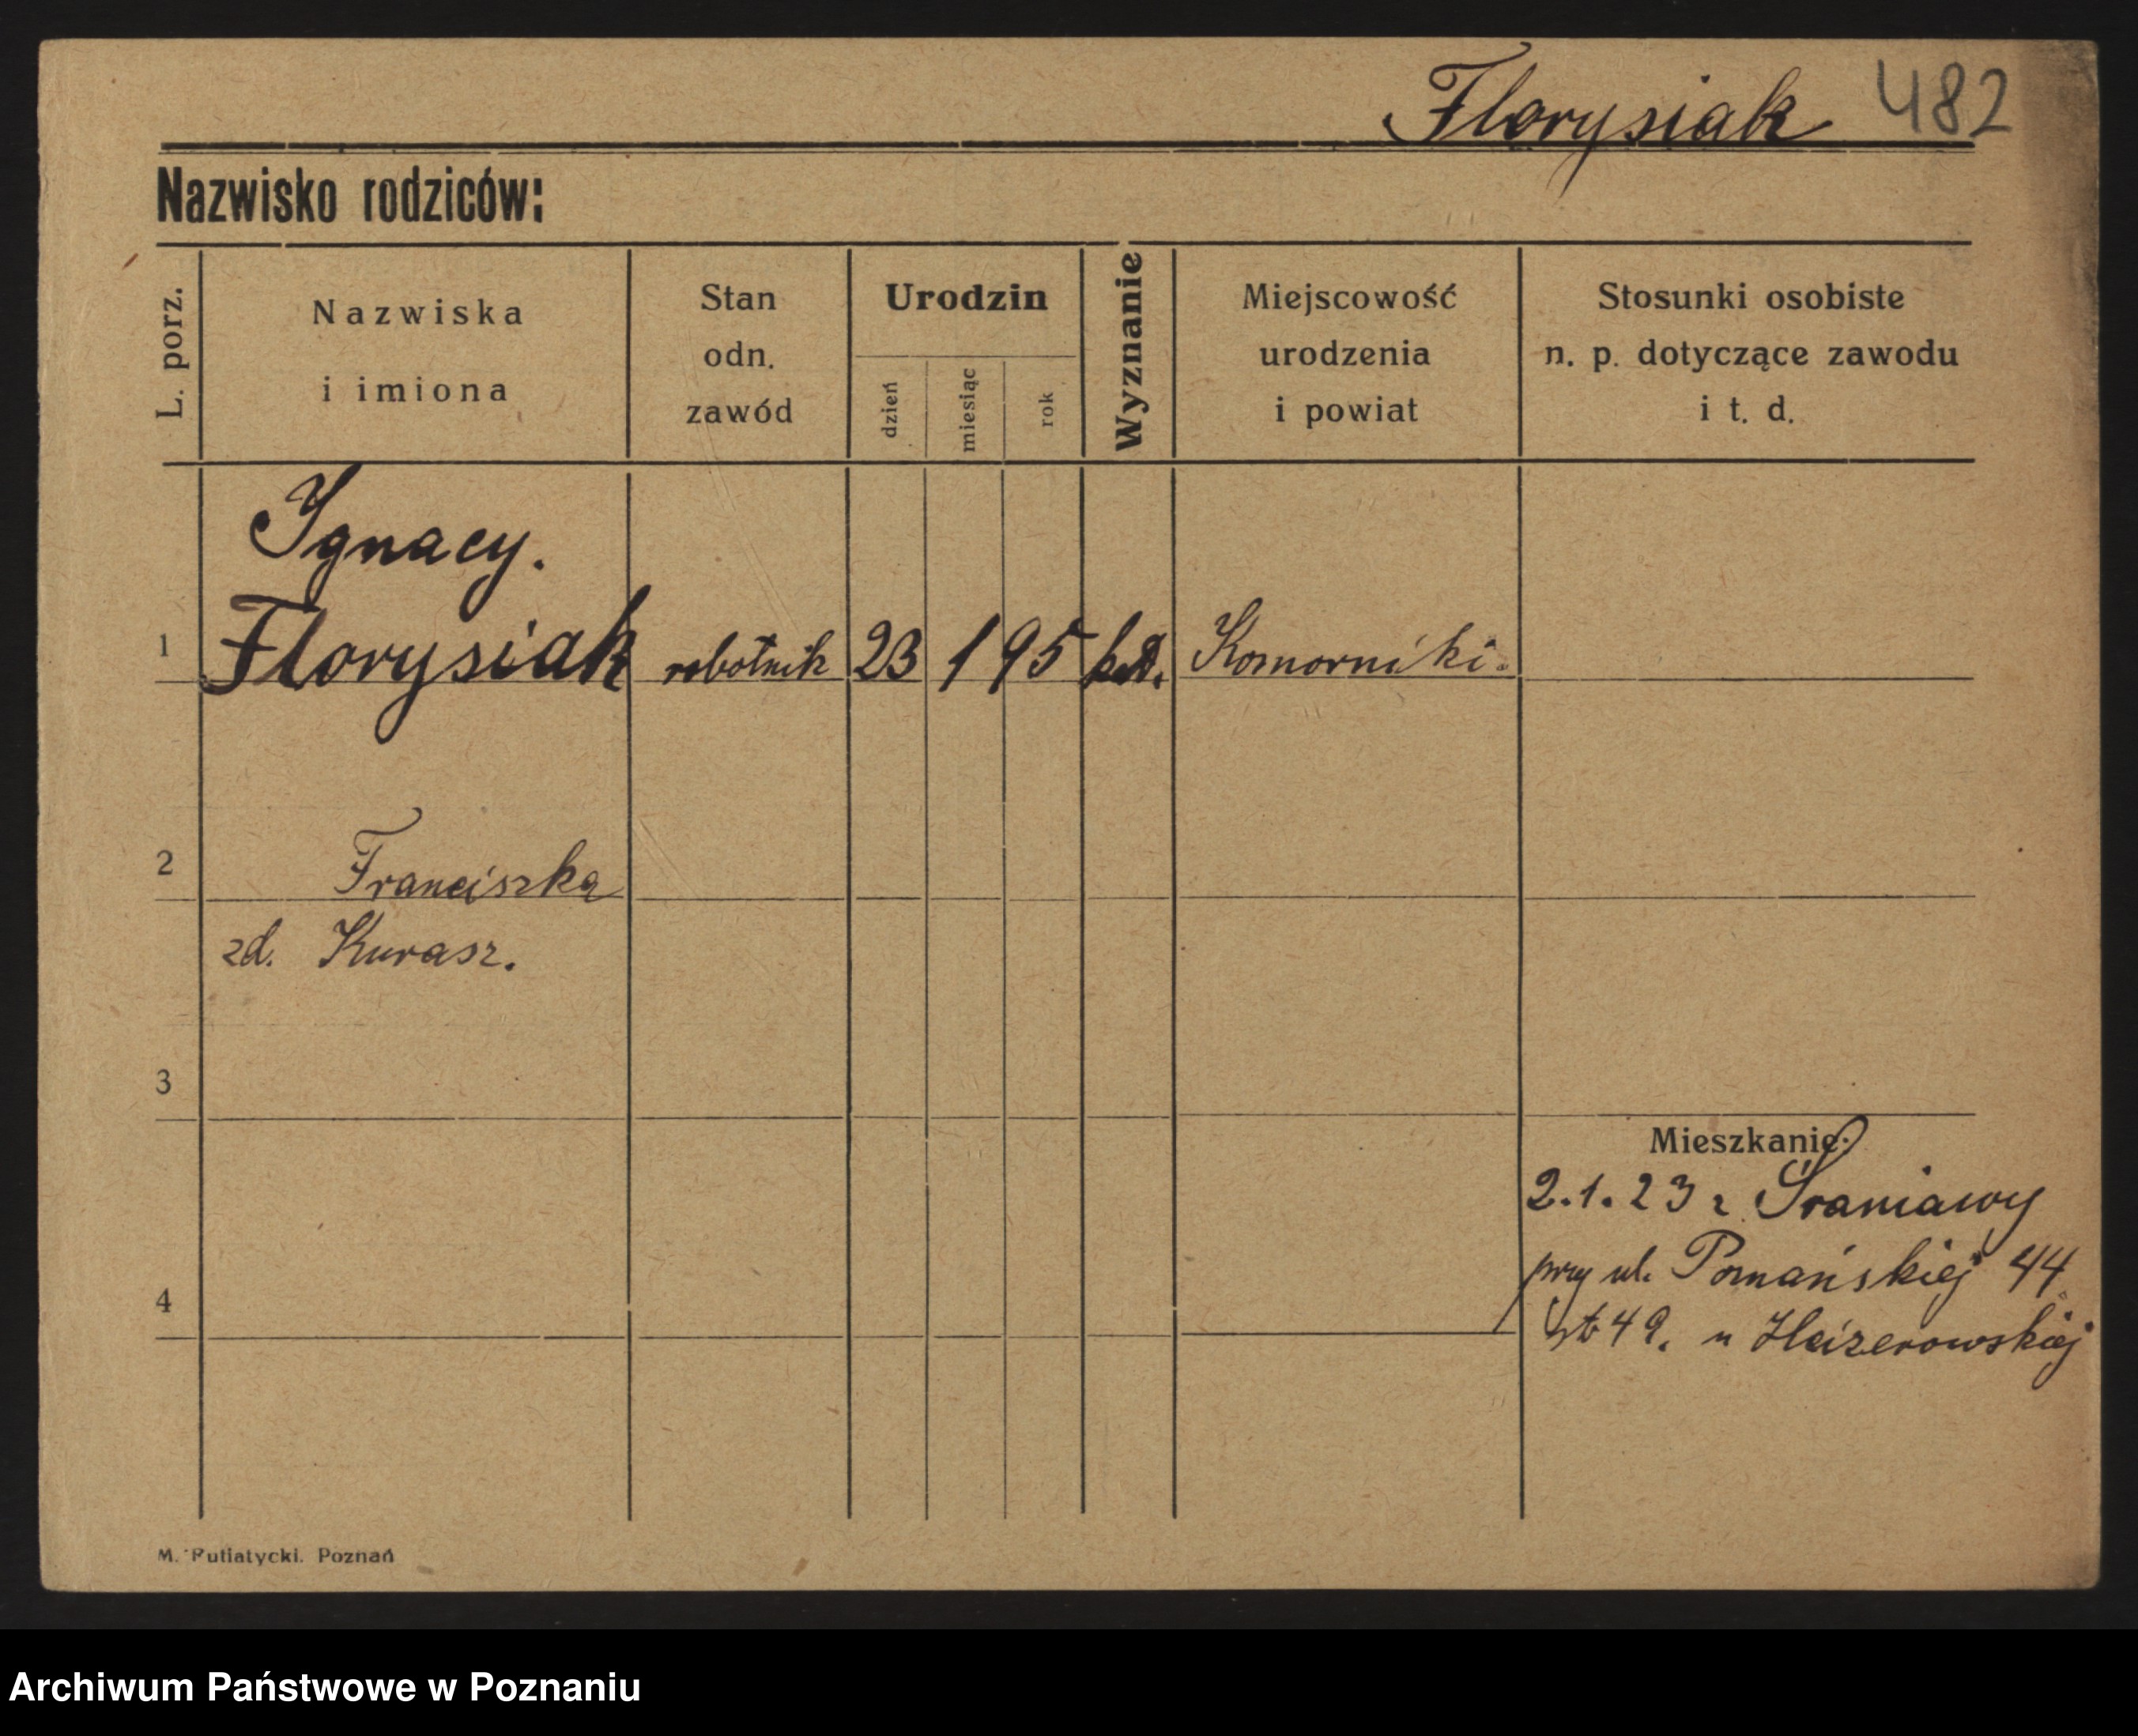 Florysiak 482
Nazwisko rodziców:
L. porz.
Nazwiska
i imiona
Stan
odn.
zawód
Urodzin
dzień
miesiąc
rok
Wyznanie
Miejscowość
urodzenia
i powiat
Stosunki osobiste
n. p. dotyczące zawodu
i t. d.
Ignacy.
1 Florysiak robotnik 23 1 95 kat. Komorniki.
2 Franciszka
zd. Kurasz.
3
Mieszkanie:
2.1.23 z
przy ul. Poznańskiej 44
4
49. u
M. Putiatycki. Poznań
Archiwum Państwowe w Poznaniu